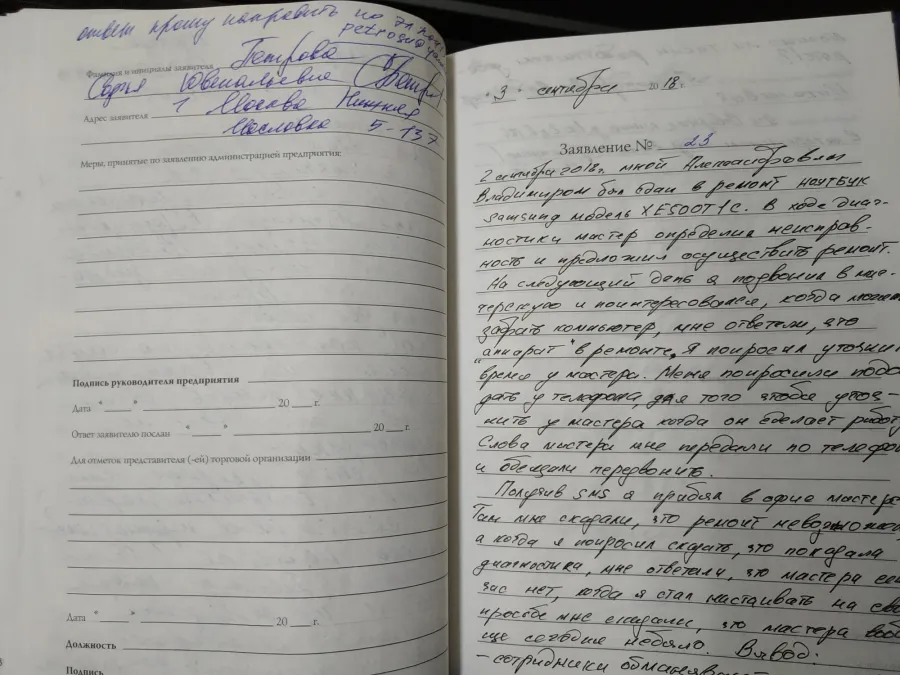 ответ прошу направить по эл.
Фамилия и инициалы заявителя Петрова
Софья Ювенальевна
Адрес заявителя г Москва Нижняя
Масловка 5-137
Меры, принятые по заявлению администрацией предприятия:
Подпись руководителя предприятия
Дата " " 20 г.
Ответ заявителю послан " " 20 г.
Для отметок представителя (-ей) торговой организации
Дата " " 20 г.
Должность
Подпись
"3" сентября 2018 г.
Заявление № 23
2 сентября 2018г. мной
Владимиром был сдан в ремонт ноутбук
Samsung модель XE500T1C. В ходе диаг-
ностики мастер определил неисправ-
ность и предложил осуществить ремонт.
На следующий день я позвонил в мас-
терскую и поинтересовался, когда можно
забрать компьютер, мне ответили, что
"аппарат" в ремонте. Я попросил уточнить
время у мастера. Меня попросили подо
дать у телефона, для того чтобы уточ-
нить у мастера когда он сделает работу
Слова мастера мне передали по телефо
и обещали перезвонить.
Получив SMS я прибыл в офис мастерс
Там мне сказали, что ремонт невозможно
а когда я попросил сказать, что показала
диагностика, мне ответили, что мастера сей
час нет, когда я стал настаивать на сво
просьбе мне сказали, что мастера вооб
ще сегодня небыло. Вывод:
- сотрудники обманывают